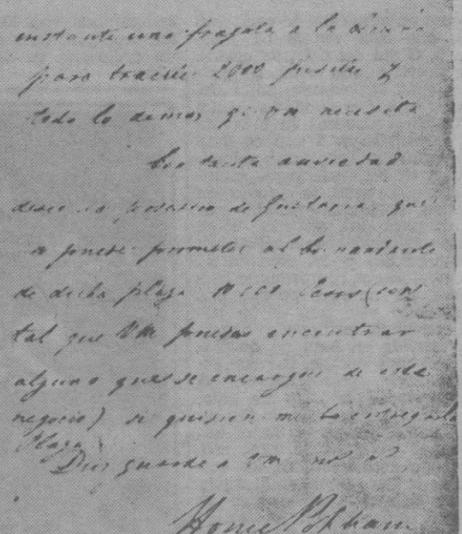 instante una fragata a la
para traer 2000 fusiles y
todo lo demas qe Vm necesita
Con tanta ansiedad
deseo la posesion de Guetaria que
se puede prometer al Comandante
de dicha plaza 10000 Pesos (con
tal que Vm pueda encontrar
alguno que se encargue de este
negocio) si quisiere
Plaza
Dios guarde a Vm ms as
Home Popham